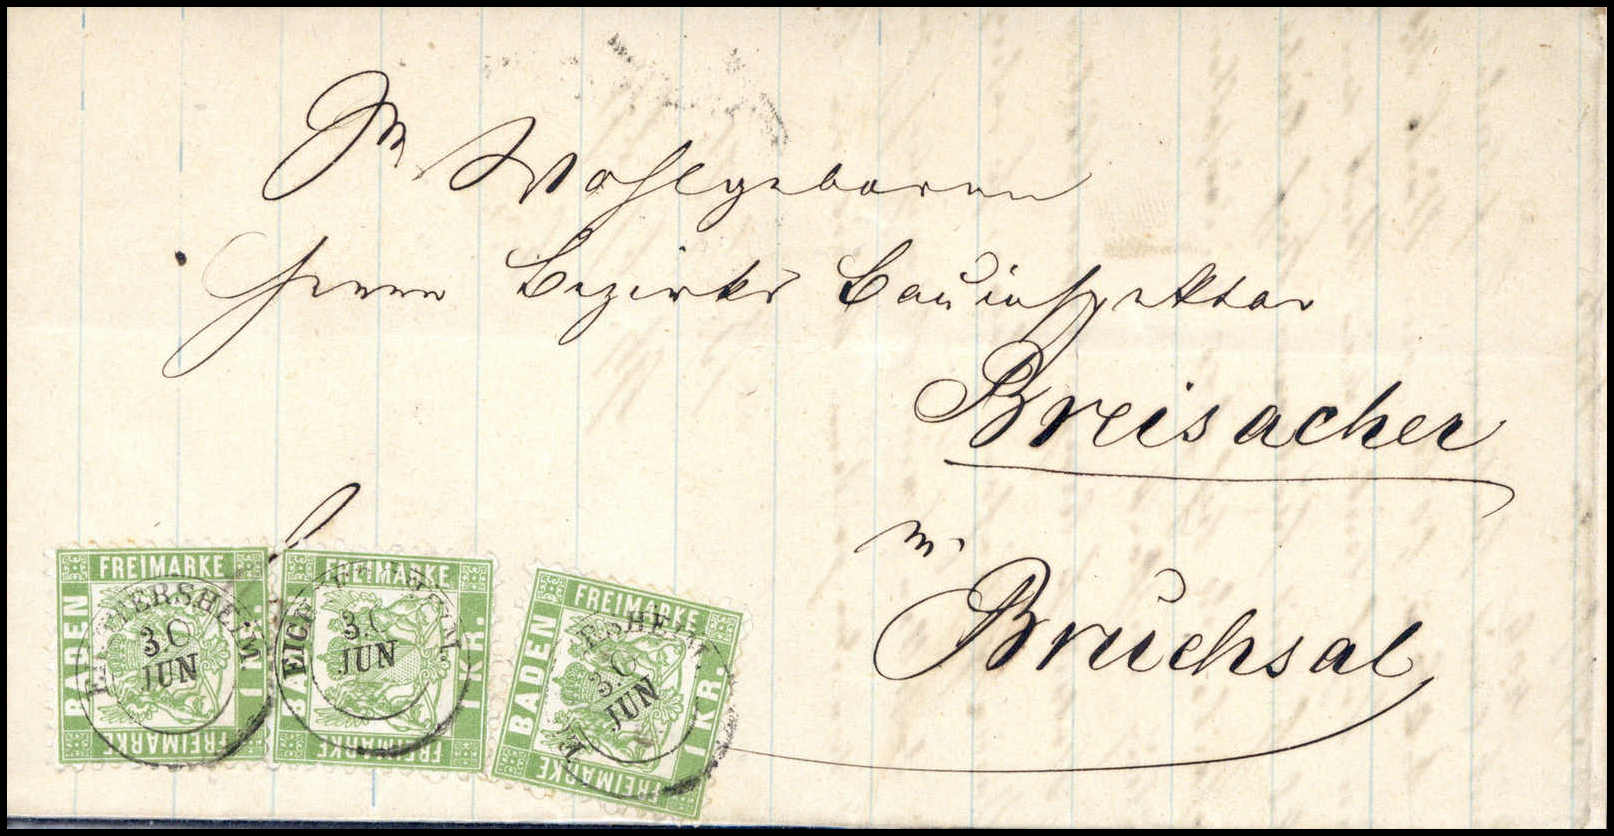 Sr Wohlgeboren
Herrn Bezirks Bauinspektor
Breisacher
in
Bruchsal
FREIMARKE
BADEN
1 KR.
FREIMARKE
30
JUN
FREIMARKE
BADEN
1 KR.
FREIMARKE
30
JUN
FREIMARKE
BADEN
1 KR.
FREIMARKE
30
JUN